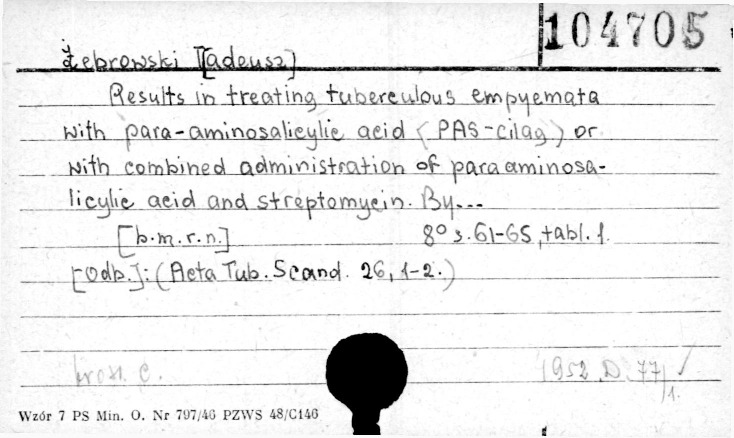 104705
Żebrowski T[adeusz]
Results in treating tuberculous empyemata
with para-aminosalicylic acid (PAS-cilag) or
with combined administration of paraaminosa-
licylic acid and streptomycin. By...
[b.m.r.n.] 8° s.61-65, tabl.1.
[Odb.]: (Acta Tub. Scand. 26, 1-2.)
1952.D.77/1.
Wzór 7 PS Min. O. Nr 797/46 PZWS 48/C146